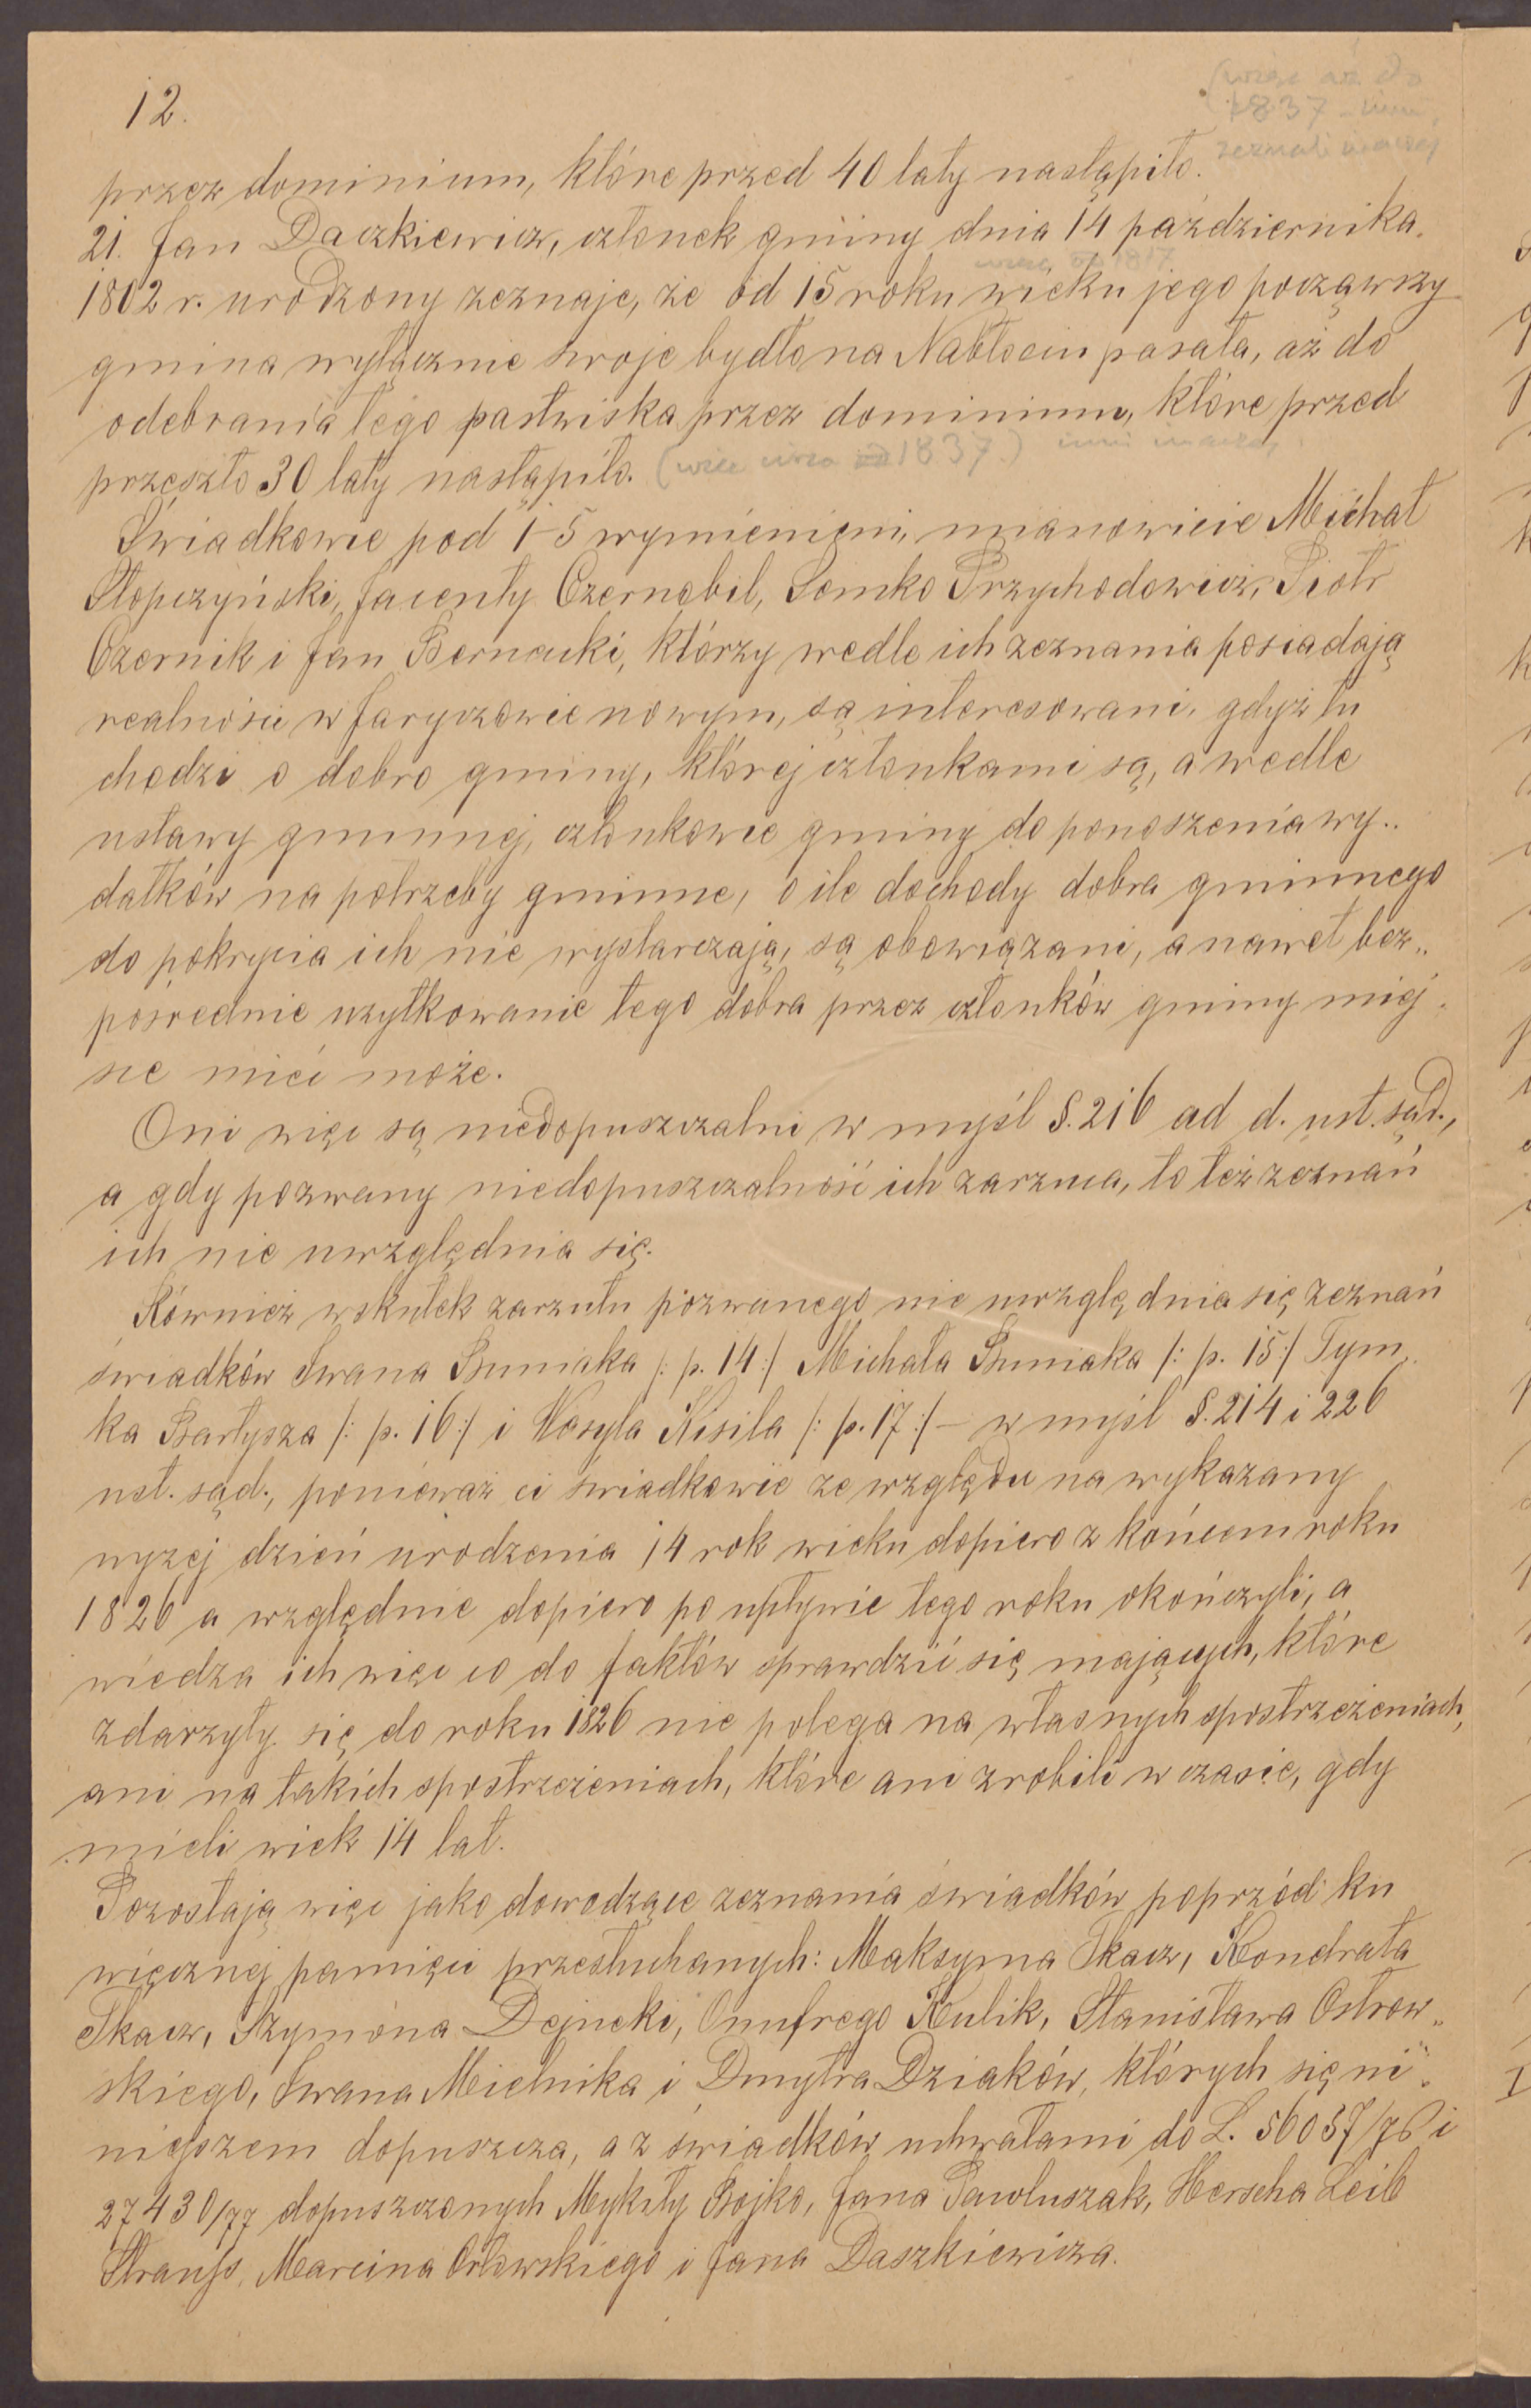 12.
(więc aż do
1837 – inni
zeznali inaczej
przez dominium, które przed 40 laty nastąpiło.
21. Jan Daczkiewicz, członek gminy dnia 14 października
więc od 1817
1802 r. urodzony zeznaje, że od 15 roku wieku jego począwszy
gmina wyłącznie swoje bydło na Nabłociu pasała, aż do
odebrania tego pastwiska przez dominium, które przed
przeszło 30 laty nastąpiło. (więc 1837.) inni inaczej
Świadkowie pod 1-5 wymienieni, mianowicie Michał
Słopczyński, Jacenty Czernobil, Semko Przychodowicz, Piotr
Czernik i Jan Bernacki, którzy wedle ich zeznania posiadają
realności w Jaryczowie nowym, są interesowani, gdyż tu
chodzi o dobro gminy, której członkami są, a wedle
ustawy gminnej, członkowie gminy do ponoszenia wy„
datków na potrzeby gminne, o ile dochody dobra gminnego
do pokrycia ich nie wystarczają, są obowiązani, a nawet bez„
pośrednie użytkowanie tego dobra przez członków gminy miej„
sce mieć może.
Oni więc są niedopuszczalni w myśl §. 216 ad d. ust. sąd.,
a gdy pozwany niedopuszczalność ich zarzuca, to też zeznań
ich nie uwzględnia się.
Również wskutek zarzutu pozwanego nie uwzględnia się zeznań
świadków Iwana Buniaka /: p. 14 :/ Michała Buniaka /: p. 15 :/ Tym„
ka Bartysza /: p. 16 :/ i Wasyla Kisila /: p. 17 :/ – w myśl §. 214 i 226
ust. sąd., ponieważ ci świadkowie ze względu na wykazany
wyżej dzień urodzenia 14 rok wieku dopiero z końcem roku
1826 a względnie dopiero po upływie tego roku okończyli, a
wiedza ich więc co do faktów sprawdzić się mających, które
zdarzyły się do roku 1826 nie polega na własnych spostrzeżeniach,
ani na takich spostrzeżeniach, które ani zrobili w czasie, gdy
mieli wiek 14 lat.
Pozostają więc jako dowodzące zeznania świadków poprzód ku
wiecznej pamięci przesłuchanych: Maksyma Tkacz, Kondrata
Tkacz, Szymona Dejneki, Onufrego Kulik, Stanisława Ostrow„
skiego, Iwana Mielnika i Dmytra Dziaków, których się ni„
niejszem dopuszcza, a z świadków uchwałami do L. 56037/76 i
27430/77 dopuszczonych Mykity Bojko, Jana Pawluszak, Herscha Leib
Strauss, Marcina Orłowskiego i Jana Daszkiewicza.